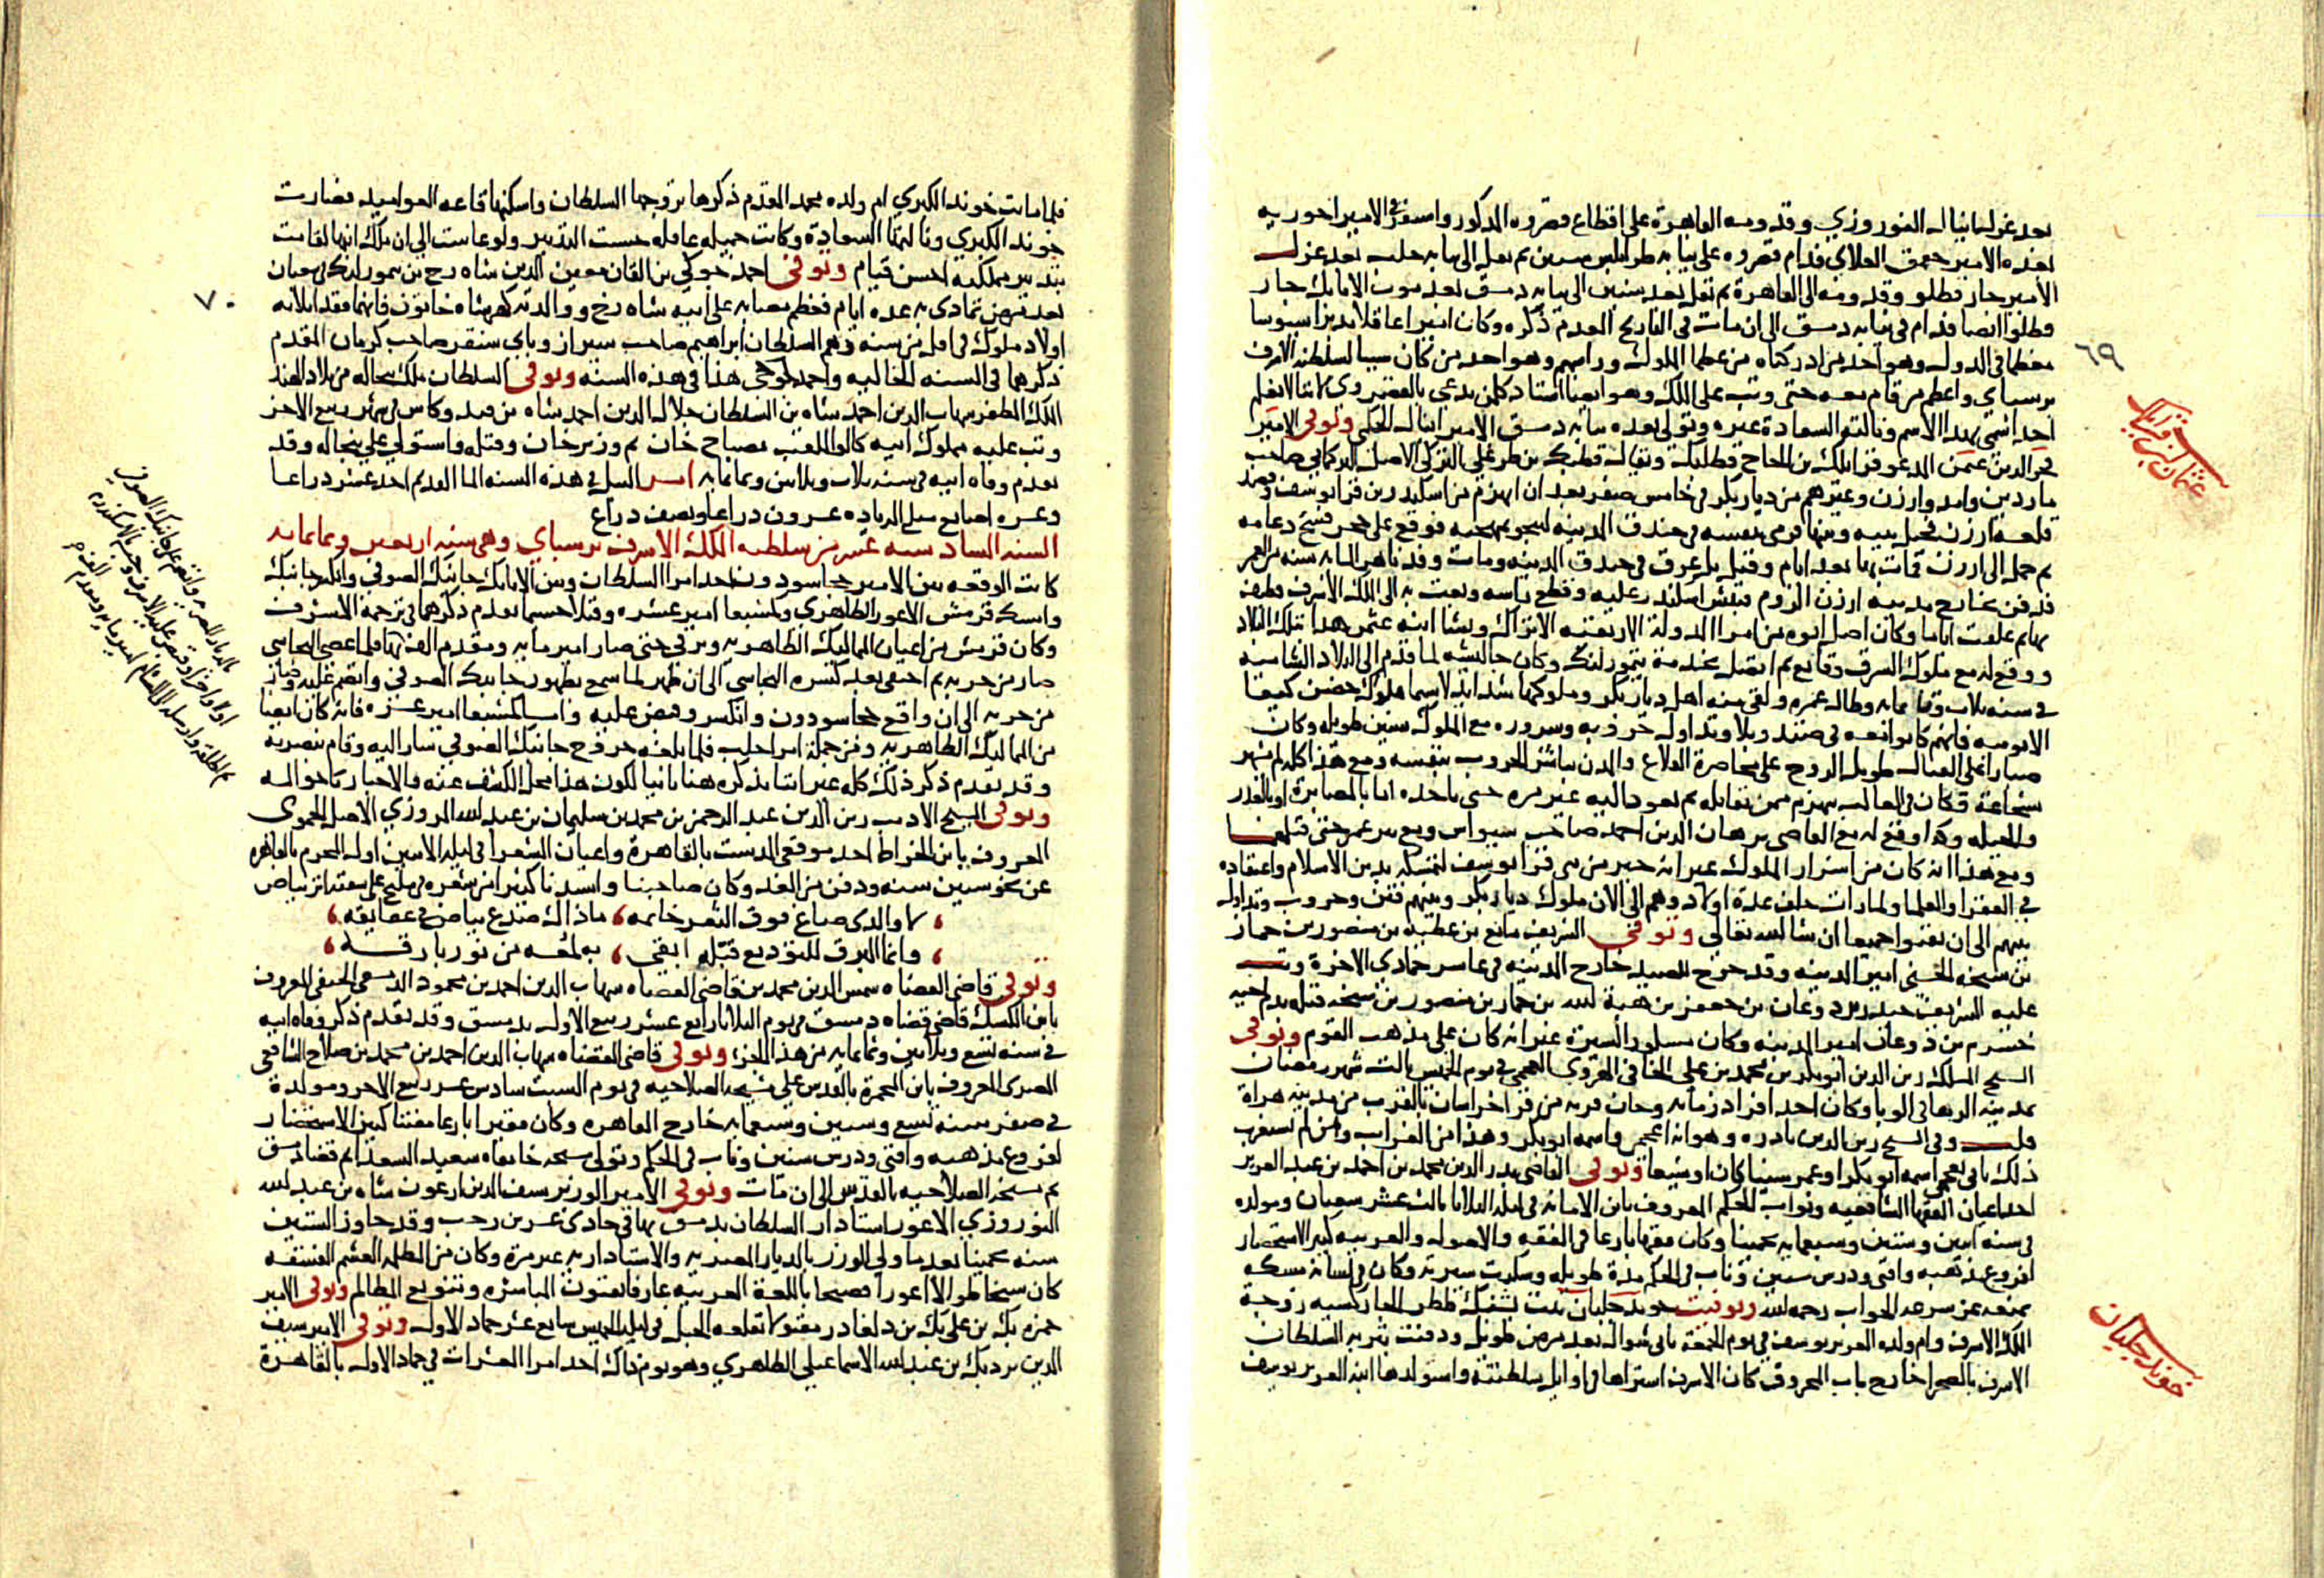 بعد عزل اينال النوروزي وقدومه القاهرة على اقطاع قصروه المذكور واستقر في الامير اخورية
بعده الامير جقمق العلاي فدام قصروه على نيابة طرابلس سنين ثم نقل الى نيابة حلب بعد عزل
الأمير جار قطلو وقدومه الى القاهرة ثم نقل بعد سنين الى نيابة دمشق بعد موت الاتابك جار
قطلوا ايضا فدام في نيابة دمشق الى ان مات في التاريخ المقدم ذكره وكان اميرا عاقلا مدبرا سيوسا
معظما في الدول وهو احد من ادركناه من عظما الملوك وراسهم وهو احد من كان سببا لسلطنة الاشرف
٦٩
برسباي واعظم من قام معه حتى وثب على الملك وهو ايضا استاد كل من يدعى بالقصروي لاننا لا نعلم
احدا سمي بهذا الاسم ونالته السعادة غيره وتولى بعده نيابة دمشق الامير اينال الجكمي وتوفى الامير
فخر الدين عثمن المدعو قرايلك بن الحاج قطلبك ويقال قطبك بن طرعلي التركي الاصل التركماني صاحب
عثمان قرايلك
ماردين وامد وارزن وغيرهم من ديار بكر في خامس صفر بعد ان انهزم من اسكندر بن قرا يوسف وقصد
قلعة ارزن فحيل بينه وبينها فرمى بنفسه في خندق المدينة لينجو بمهجته فوقع على حجر فشج دماغه
ثم حمل الى ارزن فمات بها بعد ايام وقيل بل غرق في خندق المدينة ومات وقد ناهز الماية سنة من العمر
فدفن بخارج مدينة ارزن الروم فنبش اسكندر عليه وقطع راسه وبعث به الى الملك الاشرف فطيف
بها ثم علقت اياما وكان اصل ابوه من امرا الدولة الارتقية الاتراك ونشا ابنه عثمن هذا بتلك البلاد
ووقع له مع ملوك الشرق وقايع ثم اتصل بخدمة تيمورلنك وكان جاليشه لما قدم الى البلاد الشامية
في سنة ثلاث وثمانماية وطال عمره ولقي منه اهل ديار بكر وملوكها شدايد لاسيما ملوك حصن كيفا
الايوبية فانهم كانوا معه في ضنك وبلا وتداول حروبه وشروره مع الملوك سنين طويلة وكان
صبارا على القتال طويل الروح على محاصرة القلاع والمدن يباشر الحروب بنفسه ومع هذا كله لم يشهر
بشجاعة وكان في الغالب ينهزم ممن يقاتله ثم يعود اليه غير مرة حتى ياخذه اما بالمصابرة او بالغدر
والحيلة وكذا وقع له مع القاضي برهان الدين احمد صاحب سيواس ومع بير عمر حتى قتلهما
ومع هذا انه كان من اشرار الملوك غير انه خير من بني قرا يوسف لتمسكه بدين الاسلام واعتقاده
في الفقرا والعلما ولما مات خلف عدة اولاد وهم الى الان ملوك ديار بكر وبينهم فتن وحروب وتداول
بينهم الى ان يفنوا جميعا ان شا الله تعالى وتوفى الشريف مانع بن عطية بن منصور بن جماز
بن شيحة الحسني امير المدينة وقد خرج للصيد خارج المدينة في عاشر جمادي الاخرة وثب
عليه الشريف حيدر بن دوغان بن جعفر بن هبة الله بن جماز بن منصور بن شيحة فقتله بدم اخيه
خشرم بن دوغان امير المدينة وكان مشكور السيرة غير انه كان على مذهب القوم وتوفى
الشيخ المسلك زين الدين ابو بكر بن محمد بن علي الخافي الهروي العجمي في يوم الخميس ثالث شهر رمضان
بمدينة هراة في الوبا وكان احد افراد زمانه وخاف قرية من قرا خراسان بالقرب من مدينة هراة
قلت وفي الشيخ زين الدين نادرة وهو انه اعجمي واسمه ابو بكر وهذا من الغرايب ومن لم يستغرب
ذلك ياتي بعجمي اسمه ابو بكر او عمر سنيا كان او شيعيا وتوفى القاضي بدر الدين محمد بن احمد بن عبد العزيز
احد اعيان الفقها الشافعية ونواب الحكم المعروف بابن الامانة في ليلة الثلاثا ثالث عشر شعبان ومولده
في سنة اثنين وستين وسبعماية تخمينا وكان فقيها بارعا في الفقه والاصول والعربية كثير الاستحضار
لفروع مذهبه وافتى ودرس سنين وناب في الحكم مدة طويلة وشكرت سيرته وكان في لسانه مسكة
تمنعه عن سرعة الجواب رحمه الله وتوفيت خوند جلبان بنت يشبك ططر الجاركسية زوجة
الملك الاشرف وام ولده العزيز يوسف في يوم الجمعة ثاني شوال بعد مرض طويل ودفنت بتربة السلطان
الاشرف بالصحرا خارج باب المحروق كان الاشرف اشتراها في اوايل سلطنته واستولدها ابنه العزيز يوسف
خوند جلبان
فلما ماتت خوند الكبري ام ولده محمد المقدم ذكرها تزوجها السلطان واسكنها قاعة العواميد فصارت
خوند الكبري ونالتها السعادة وكانت جميلة عاقلة حسنة التدبير ولو عاشت الى ان ملك ابنها لقامت
بتدبير مملكته احسن قيام وتوفى احمد جوكي بن القان معين الدين شاه رخ بن تيمورلنك في شعبان
بعد مرض تمادى به عدة ايام فعظم مصابه على ابيه شاه رخ ووالدته كهرشاه خاتون فانهما فقدا ثلاثة
٧٠
اولاد ملوك في اقل من سنة وهم السلطان ابراهيم صاحب شيراز وباي سنقر صاحب كرمان المقدم
ذكرهما في السنة الخالية واحمد جوكي هذا في هذه السنة وتوفى السلطان ملك بنجالة من بلاد الهند
الملك المظفر شهاب الدين احمد شاه بن السلطان جلال الدين احمد شاه بن فندو كاس في شهر ربيع الاخر
وثب عليه مملوك ابيه كالو الملقب مصباح خان ثم وزير خان وقتله واستولى على بنجالة وقد
تقدم وفاة ابيه في سنة ثلاث وثلاثين وثمانماية امر النيل في هذه السنة الما القديم احد عشر ذراعا
وعشرة اصابع مبلغ الزيادة عشرون ذراعا ونصف ذراع
السنة السادسة عشر من سلطنة الملك الاشرف برسباي وهي سنة اربعين وثمانماية
كانت الوقعة بين الامير خجا سودون احد امرا السلطان وبين الاتابك جانبك الصوفي وانكسر جانبك
وامسك قرمش الاعور الظاهري وكمشبغا امير عشرة وقتلا حسبما تقدم ذكرهما في ترجمة الاشرف
وكان قرمش من اعيان المماليك الظاهرية وترقى حتى صار امير ماية ومقدم الف بها فلما عصى البجاسي
صار من حزبه ثم اختفى بعد كسرة البجاسي الى ان ظهر لما سمع بظهور جانبك الصوفي وانضم عليه وصار
من حزبه الى ان واقع خجا سودون وانكسر وقبض عليه واما كمشبغا امير عشرة فانه كان ايضا
من المماليك الظاهرية ومن جملة امرا حلب فلما بلغه خروج جانبك الصوفي سار اليه وقام بنصرته
وقد تقدم ذكر ذلك كله غير اننا نذكره هنا ثانيا لكون هذا محل الكشف عنه والاخبار باحواله
وتوفى الشيخ الاديب زين الدين عبد الرحمن بن محمد بن سليمان بن عبد الله المروزي الاصل الحموي
المعروف بابن الخراط احد موقعي الدست بالقاهرة واعيان الشعرا في ليلة الاثنين اول المحرم بالقاهرة
عن نحو ستين سنة ودفن من الغد وكان صاحبنا وانشدنا كثيرا من شعره في مليح على شفته اثر بياض
لا والذي صاغ فوق الثغر خاتمه ماذاك صدع بياض في عقايقه
وانما البرق للتوديع قبله ابقى به لمعة من نور بارقه
وتوفى قاضي القضاة شمس الدين محمد بن قاضي القضاة شهاب الدين احمد بن محمود الدمشقي الحنفي المعروف
بابن الكشك قاضي قضاة دمشق في يوم الثلاثا رابع عشر ربيع الاول بدمشق وقد تقدم ذكر وفاة ابيه
في سنة تسع وثلاثين وثمانماية من هذا الجزء وتوفى قاضي القضاة شهاب الدين احمد بن محمد بن صلاح الشافعي
المصري المعروف بابن المحمرة بالقدس على مشيخة الصلاحية في يوم السبت سادس عشر ربيع الاخر ومولده
في صفر سنة تسع وستين وسبعماية خارج القاهرة وكان فقيرا بارعا مفتنا كثير الاستحضار
لفروع مذهبه وافتى ودرس سنين وناب في الحكم وتولى مشيخة خانقاه سعيد السعدا ثم قضا دمشق
ثم مشيخة الصلاحية بالقدس الى ان مات وتوفى الامير الوزير سيف الدين ارغون شاه بن عبد الله
النوروزي الاعور استادار السلطان بدمشق بها في حادى عشرين رجب وقد جاوز الستين
سنة تخمينا بعد ما ولي الوزر بالديار المصرية والاستادارية غير مرة وكان من الظلمة الغشم الفسقة
كان شيخا طوالا اعورا فصيحا باللغة العربية عارفا بفنون المباشرة وتنويع المظالم وتوفى الامير
حمزة بك بن علي بك بن دلغادر مقتولا بقلعة الجبل في ليلة الخميس سابع عشر جماد الاول وتوفى الامير سيف
الدين بردبك بن عبد الله الاسماعيلي الظاهري وهو يوم ذاك احد امرا العشرات في جماد الاول بالقاهرة